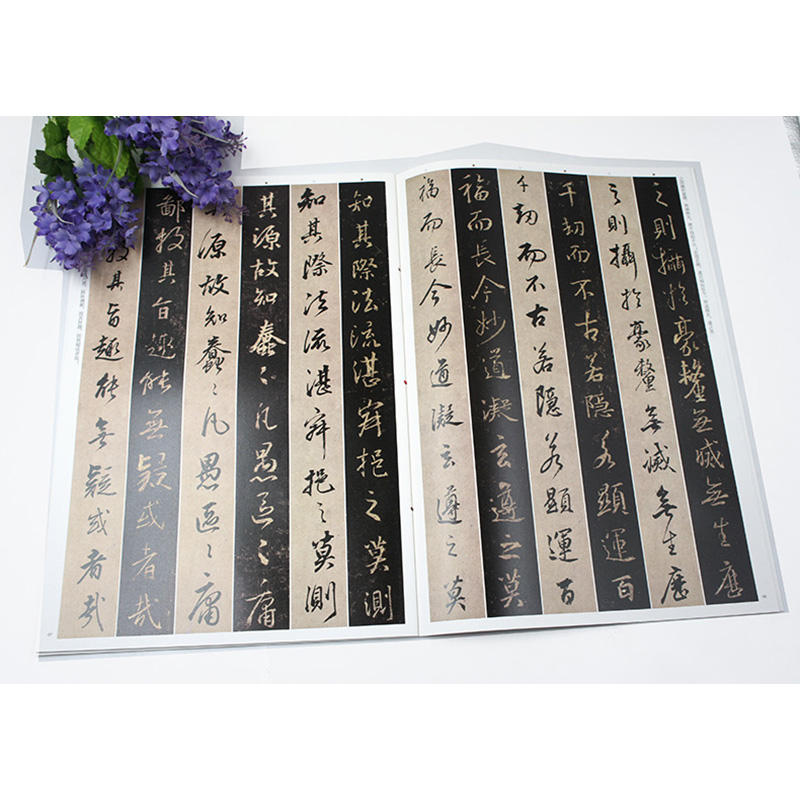 之則攝於豪釐無滅無生歷
之則攝於豪釐無滅無生歷
千劫而不古若隱若顯運百
千劫而不古若隱若顯運百
福而長今妙道凝玄遵之莫
福而長今妙道凝玄遵之莫
知其際法流湛寂挹之莫測
知其際法流湛寂挹之莫測
其源故知蠢〻凡愚區〻庸
源故知蠢〻凡愚區〻庸
鄙投其旨趣能無疑或者哉
投其旨趣能無疑或者哉